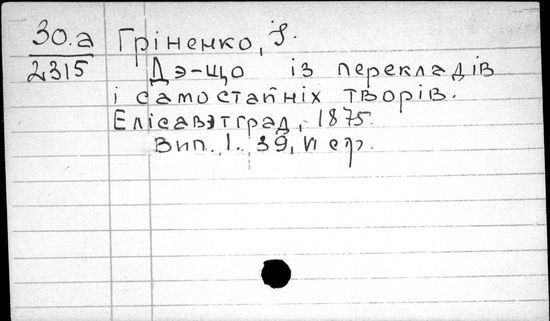 30.a Гріненко, І.
2315 Дэ-що із перекладів
і самостайніх творів.
Елісавэтград, 1875.
Вип. I. 39, VI стр.